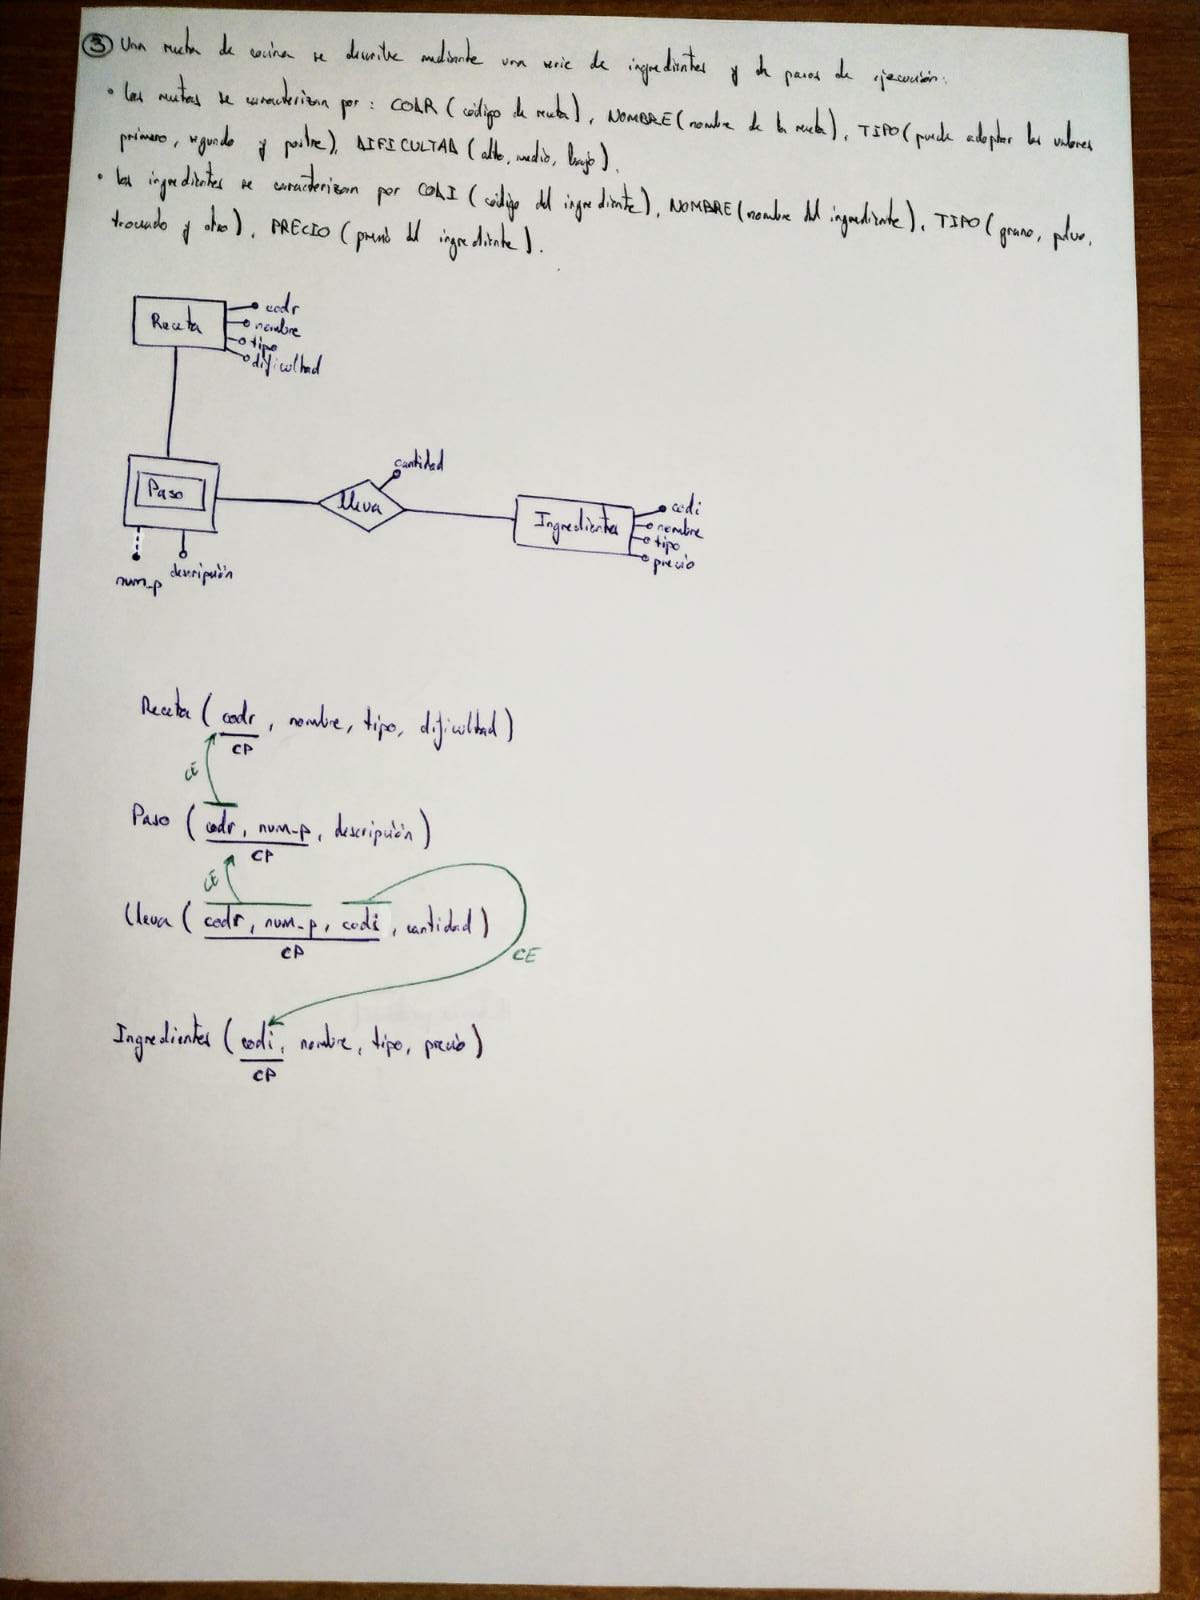 ③ Una receta de cocina se describe mediante una serie de ingredientes y de pasos de ejecución:
• Las recetas se caracterizan por: CODR (código de receta), NOMBRE (nombre de la receta), TIPO (puede adoptar los valores
primero, segundo y postre), DIFICULTAD (alto, medio, bajo).
• Los ingredientes se caracterizan por CODI (código del ingrediente), NOMBRE (nombre del ingrediente), TIPO (grano, polvo,
troceado y otro), PRECIO (precio del ingrediente).
Receta
codr
nombre
tipo
dificultad
Paso
num_p
descripción
lleva
cantidad
Ingredientes
codi
nombre
tipo
precio
Receta (codr, nombre, tipo, dificultad)
CP
CE
Paso (codr, num_p, descripción)
CP
CE
lleva (codr, num_p, codi, cantidad)
CP
CE
Ingredientes (codi, nombre, tipo, precio)
CP